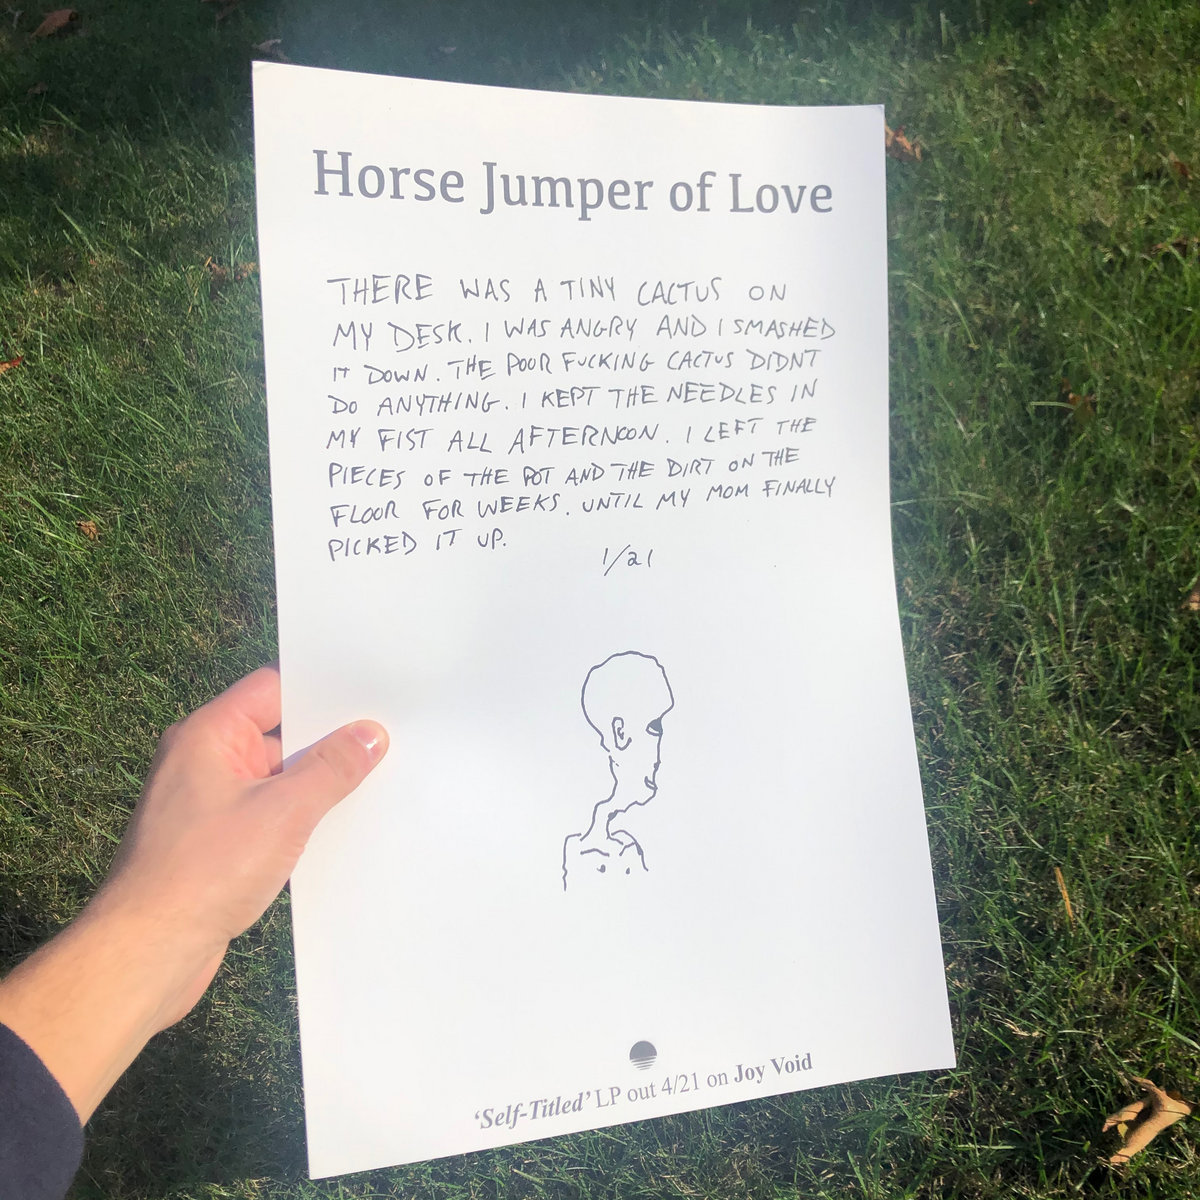 Horse Jumper of Love
THERE WAS A TINY CACTUS ON
MY DESK. I WAS ANGRY AND I SMASHED
IT DOWN. THE POOR FUCKING CACTUS DIDNT
DO ANYTHING. I KEPT THE NEEDLES IN
MY FIST ALL AFTERNOON. I LEFT THE
PIECES OF THE POT AND THE DIRT ON THE
FLOOR FOR WEEKS. UNTIL MY MOM FINALLY
PICKED IT UP.
1/21
'Self-Titled' LP out 4/21 on Joy Void